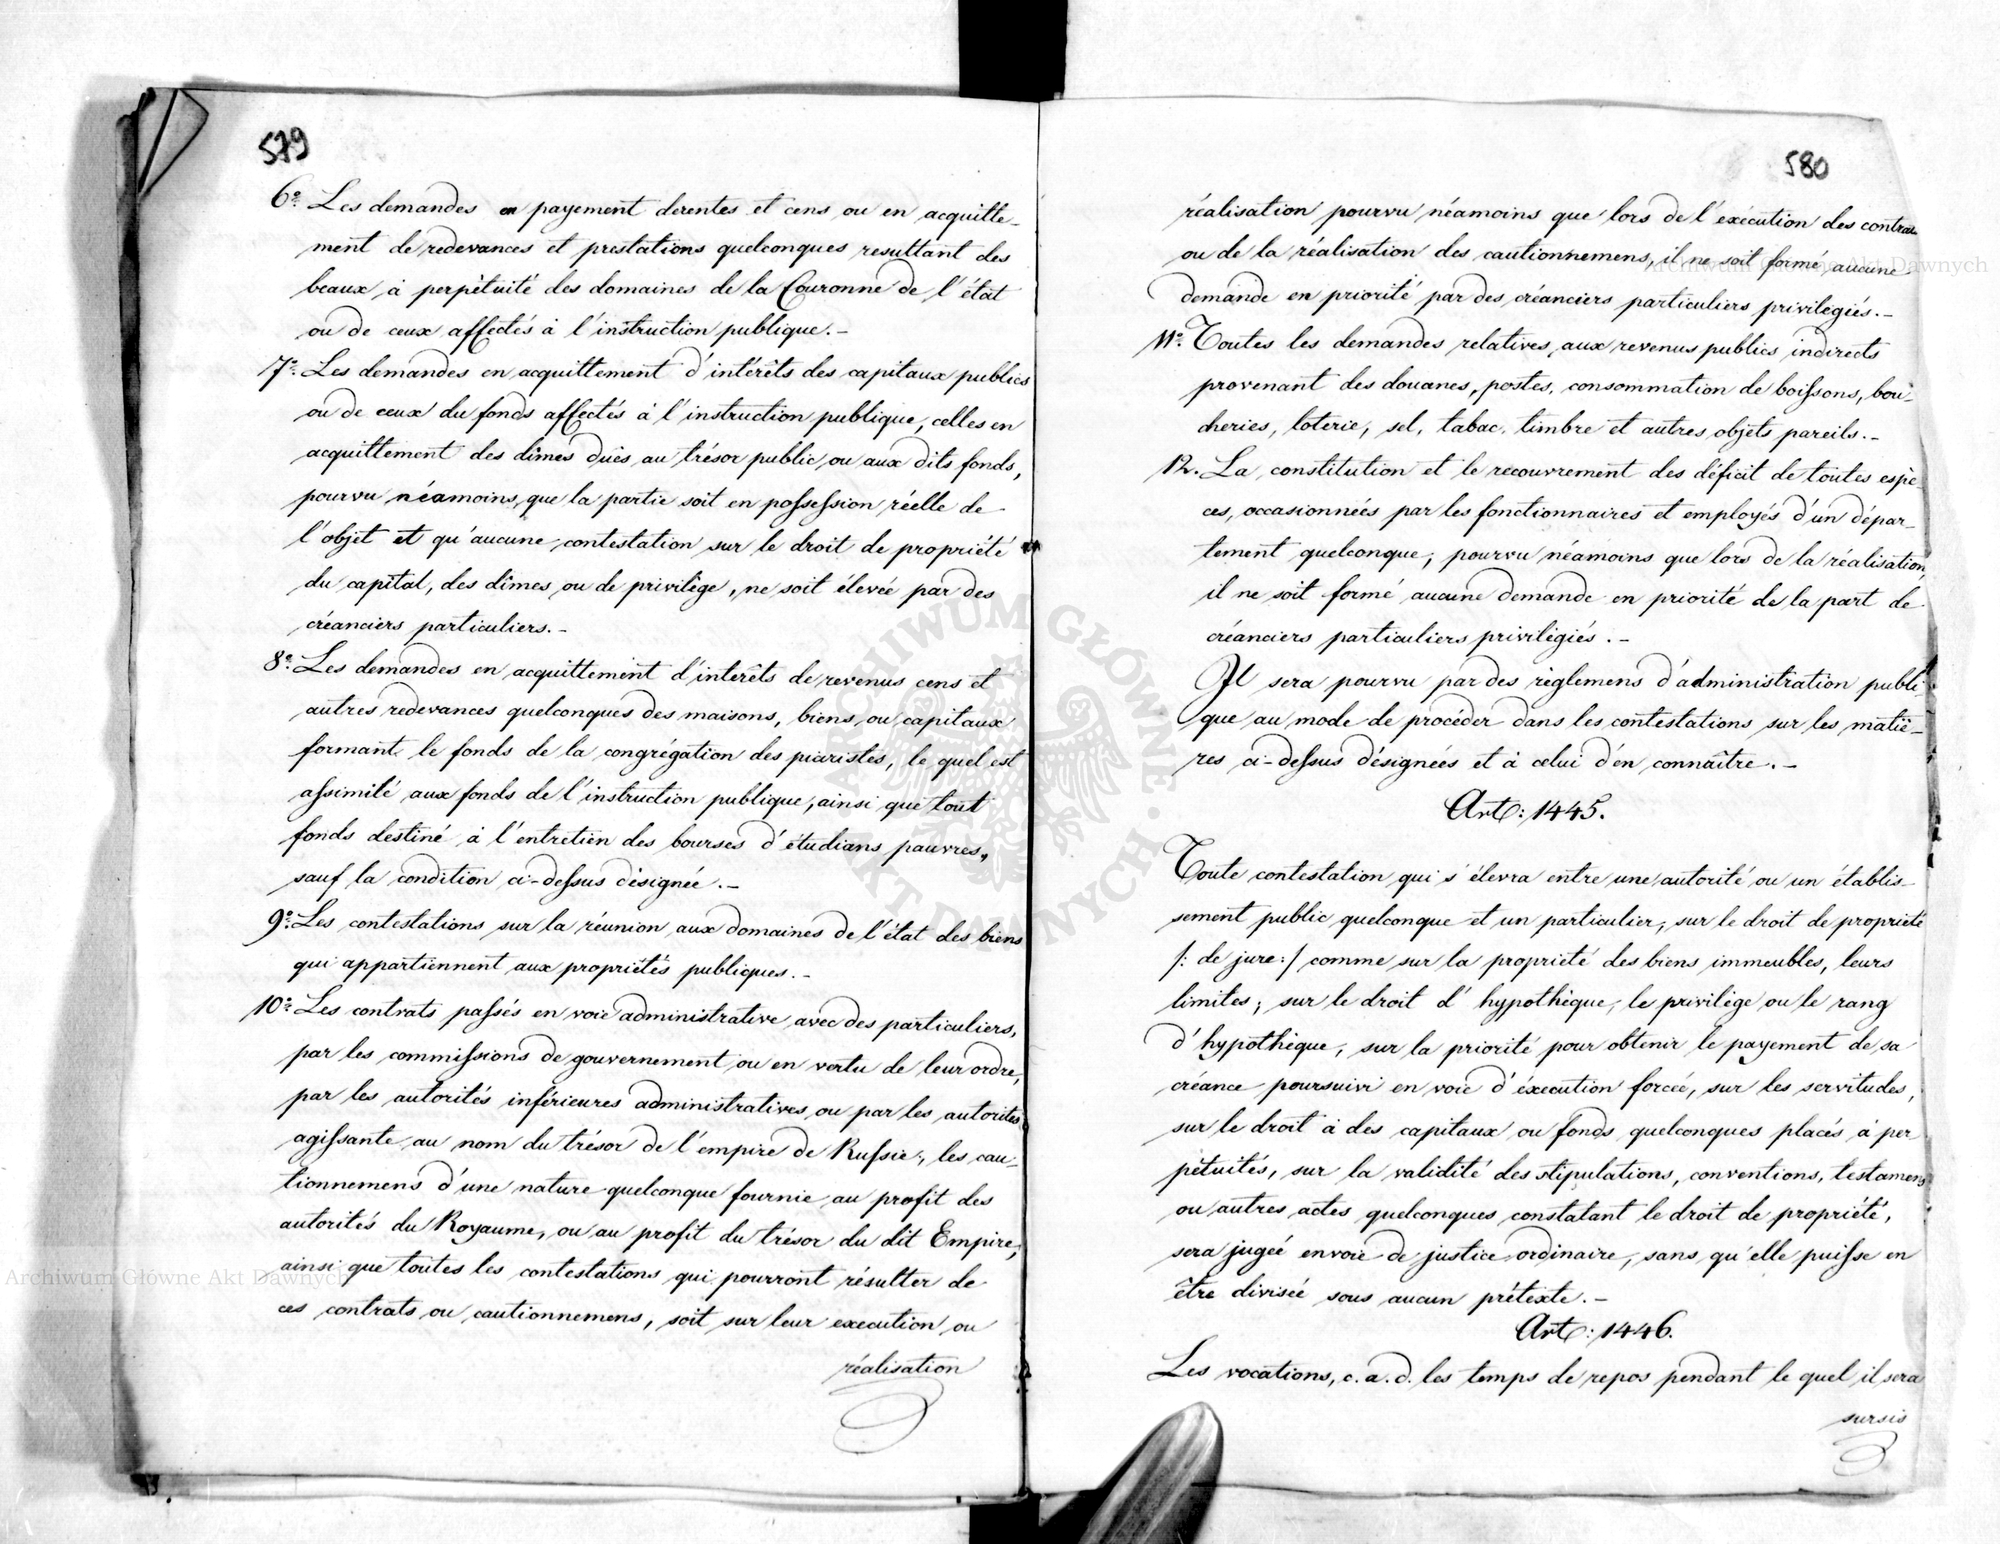 579
6º Les demandes en payement derentes et cens ou en acquitte-
ment de redevances et prestations quelconques resultant des
beaux à perpètuité des domaines de la Couronne de l'état
ou de ceux affectés à l'instruction publique.-
7º Les demandes en acquittement d'intérêts des capitaux publics
ou de ceux du fonds affectés à l'instruction publique, celles en
acquittement des dîmes dues au trésor public, ou aux dits fonds,
pourvu néamoins, que la partie soit en possession réelle de
l'objet et qu'aucune contestation sur le droit de propriété
du capital, des dîmes, ou de privilège, ne soit élevée par des
créanciers particuliers.-
8º Les demandes en acquittement d'intérêts de revenus cens et
autres redevances quelconques des maisons, biens, ou capitaux
formant le fonds de la congrégation des piaristes, le quel est
assimilé aux fonds de l'instruction publique, ainsi que tout
fonds destiné à l'entretien des bourses d'étudians pauvres,
sauf la condition ci-dessus désignée.-
9º Les contestations sur la réunion aux domaines de l'état des biens
qui appartiennent aux propriétés publiques.-
10º Les contrats passés en voie administrative avec des particuliers,
par les commissions de gouvernement ou en vertu de leur ordre,
par les autorités inférieures administratives, ou par les autorités
agissante au nom du trésor de l'empire de Russie, les cau-
tionnemens d'une nature quelconque fournie au profit des
autorités du Royaume, ou au profit du trésor du dit Empire,
ainsi que toutes les contestations qui pourront résulter de
ces contrats ou cautionnemens, soit sur leur execution ou
réalisation
580
réalisation pourvu néamoins que lors de l'exécution des contrats
ou de la réalisation des cautionnemens, il ne soit formé aucune
demande en priorité par des créanciers particuliers privilegiés.-
11º Toutes les demandes relatives aux revenus publics indirects
provenant des douanes, postes, consommation de boissons, bou-
cheries, loterie, sel, tabac, timbre et autres objets pareils.-
12. La constitution et le recouvrement des déficit de toutes espè-
ces, occasionnées par les fonctionnaires et employés d'un dépar-
tement quelconque, pourvu néamoins que lors de la réalisation,
il ne soit formé aucune demande en priorité de la part de
créanciers particuliers privilégiés.-
Il sera pourvu par des règlemens d'administration publi-
que au mode de procéder dans les contestations sur les matiè-
res ci-dessus désignées et à celui d'en connaître.-
Art: 1445.
Toute contestation qui s'élevra entre une autorité ou un établis-
sement public quelconque et un particulier, sur le droit de propriété
/: de jure :/ comme sur la propriété des biens immeubles, leurs
limites, sur le droit d'hypothèque, le privilège ou le rang
d'hypothèque, sur la priorité pour obtenir le payement de sa
créance poursuivi en voie d'éxecution forcée, sur les servitudes,
sur le droit à des capitaux ou fonds quelconques placés à per
pétuités, sur la validité des stipulations, conventions, testamens
ou autres actes quelconques constatant le droit de propriété,
sera jugée en voie de justice ordinaire, sans qu'elle puisse en
être divisée sous aucun prétexte.-
Art: 1446.
Les vocations, c. a. d. les temps de repos pendant le quel il sera
sursis
Archiwum Główne Akt Dawnych
Archiwum Główne Akt Dawnych
ARCHIWUM GŁÓWNE AKT DAWNYCH